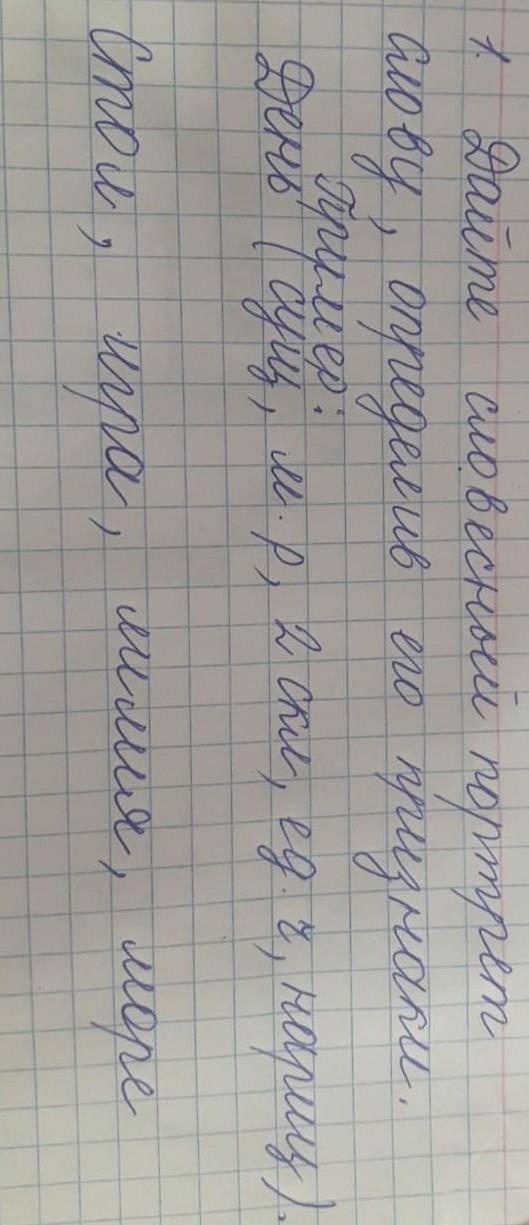 1. Дайте словесный портрет
слову, определив его признаки.
Пример:
День (сущ, м.р, 2 скл, ед. ч, нариц).
Стол, игра, лилия, море